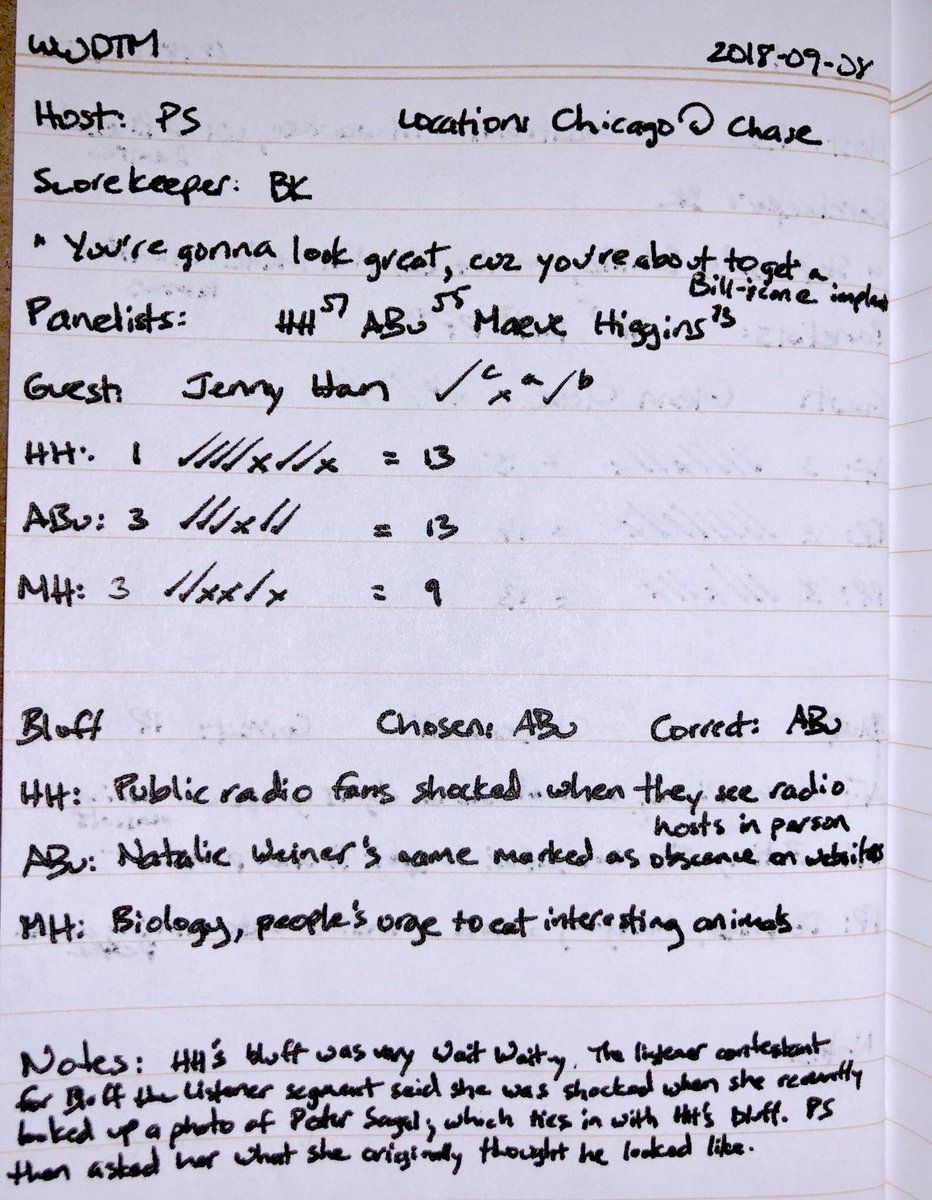 WWDTM 2018-09-08
Host: PS Location: Chicago @ Chase
Scorekeeper: BK
" You're gonna look great, cuz you're about to get a
Bill-icone implant
Panelists: HH⁵⁷ ABu⁵⁵ Maeve Higgins⁷³
Guest: Jenny Han ✓ᶜ xᵃ ✓ᵇ
HH: 1 ✓✓✓✓x✓✓x = 13
ABu: 3 ✓✓✓x✓✓ = 13
MH: 3 ✓✓xx✓x = 9
Bluff Chosen: ABu Correct: ABu
HH: Public radio fans shocked when they see radio
hosts in person
ABu: Natalie Weiner's name marked as obscence on websites
MH: Biology, people's urge to eat interesting animals
Notes: HH's bluff was very Wait Wait-y. The listener contestant
for Bluff the Listener segment said she was shocked when she recently
looked up a photo of Peter Sagal; which ties in with HH's bluff. PS
then asked her what she originally thought he looked like.